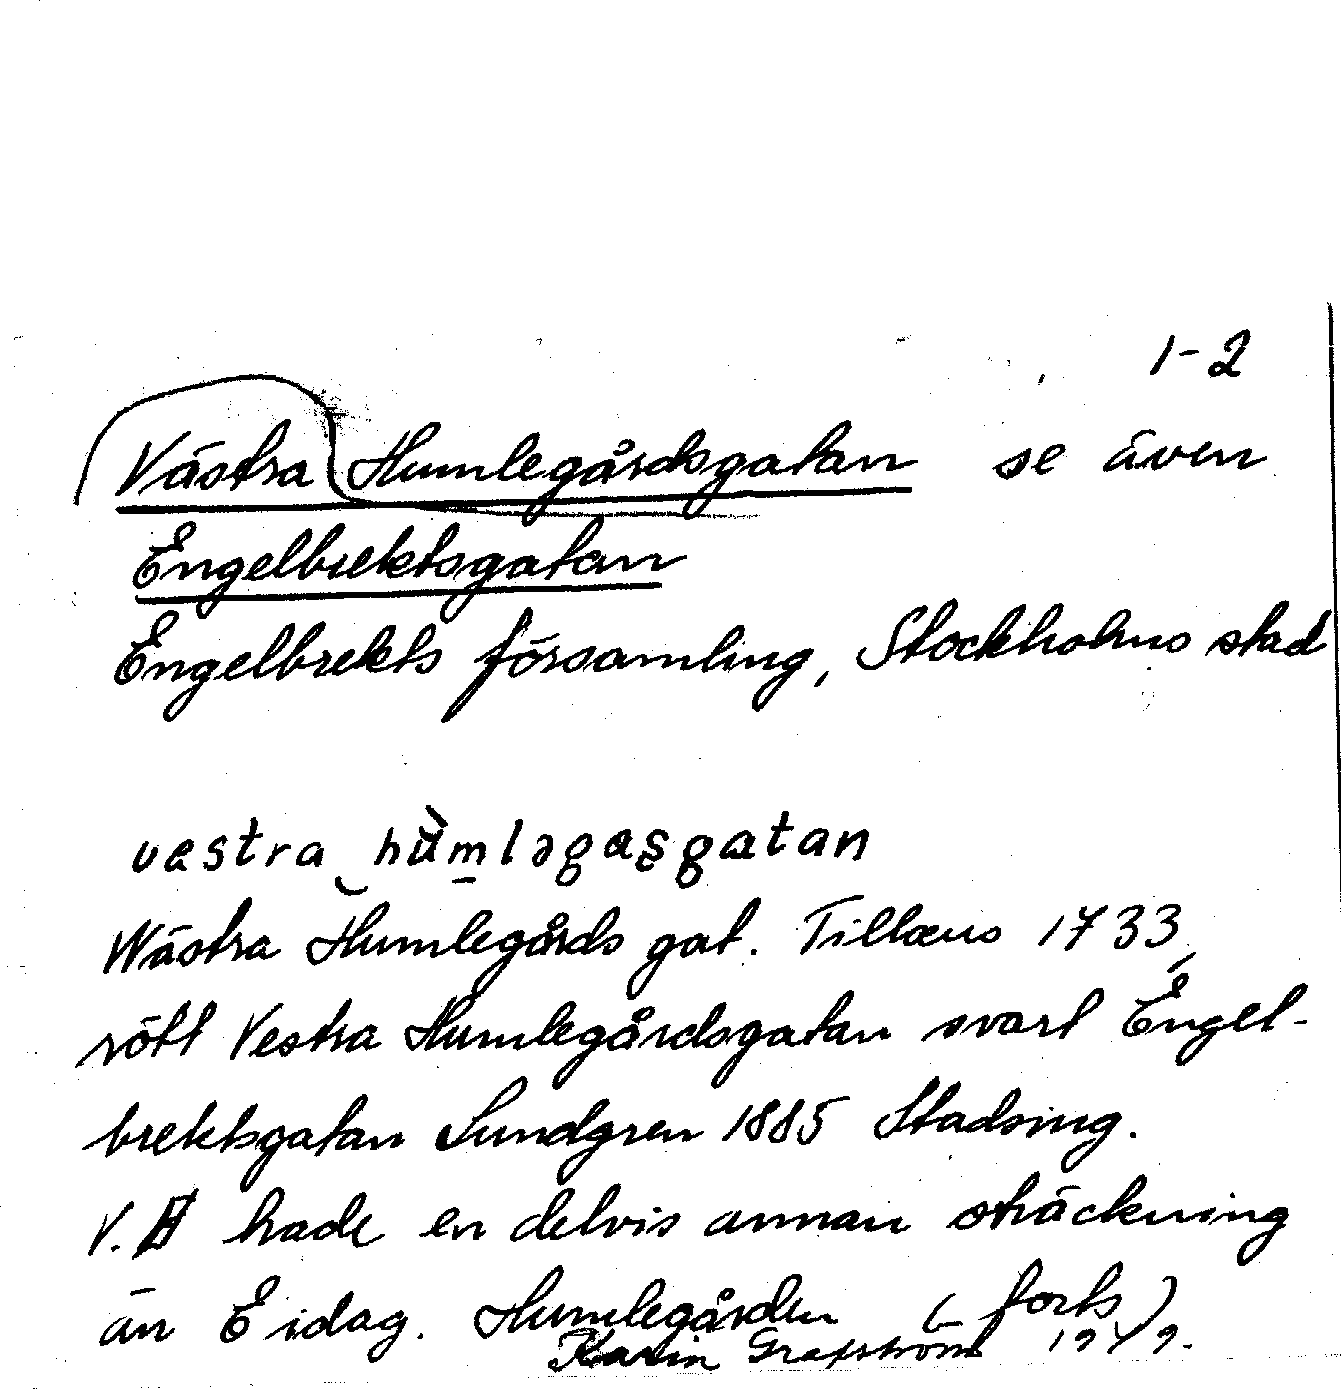 1-2
Västra Humlegårdsgatan se även
Engelbrektsgatan
Engelbrekts församling, Stockholms stad
vestra hùmləgaşgatan
Wästra Humlegårds gat. Tillæus 1733,
rött Vestra Humlegårdsgatan svart Engel-
brektsgatan Lundgren 1885 Stadsing.
V. H hade en delvis annan sträckning
än E idag. Humlegården (forts)
Karin Grafström 1979.